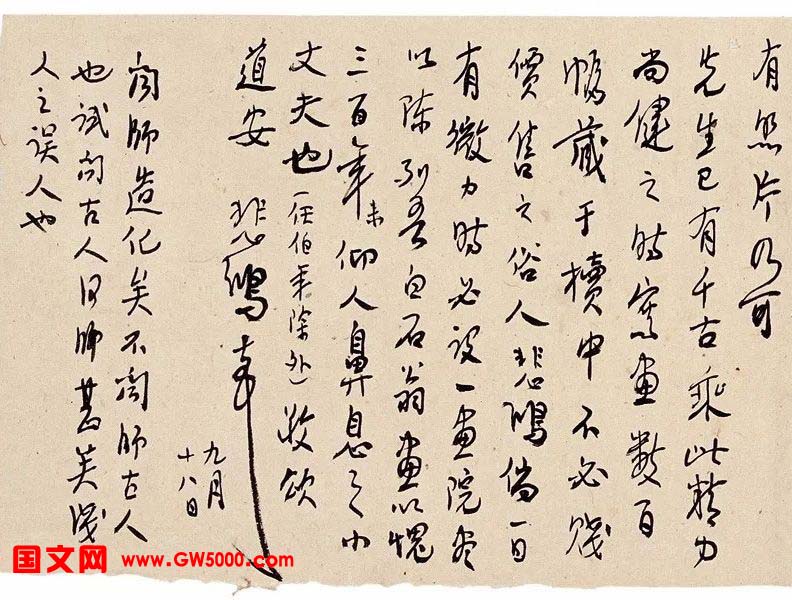 有照片乃可
先生已有千古乘此精力
尚健之时写画数百
幅藏于椟中不必贱
價售之俗人悲鴻倘一日
有微力时必设一画院尽
以陈列吾白石翁画以愧
三百年来仰人鼻息之小
丈夫也（任伯年除外）敬颂
道安 悲鴻 
九月
十八日
既師造化矣不問師古人
也试问古人何師甚矣
人之误人也
国文网 www.GW5000.com